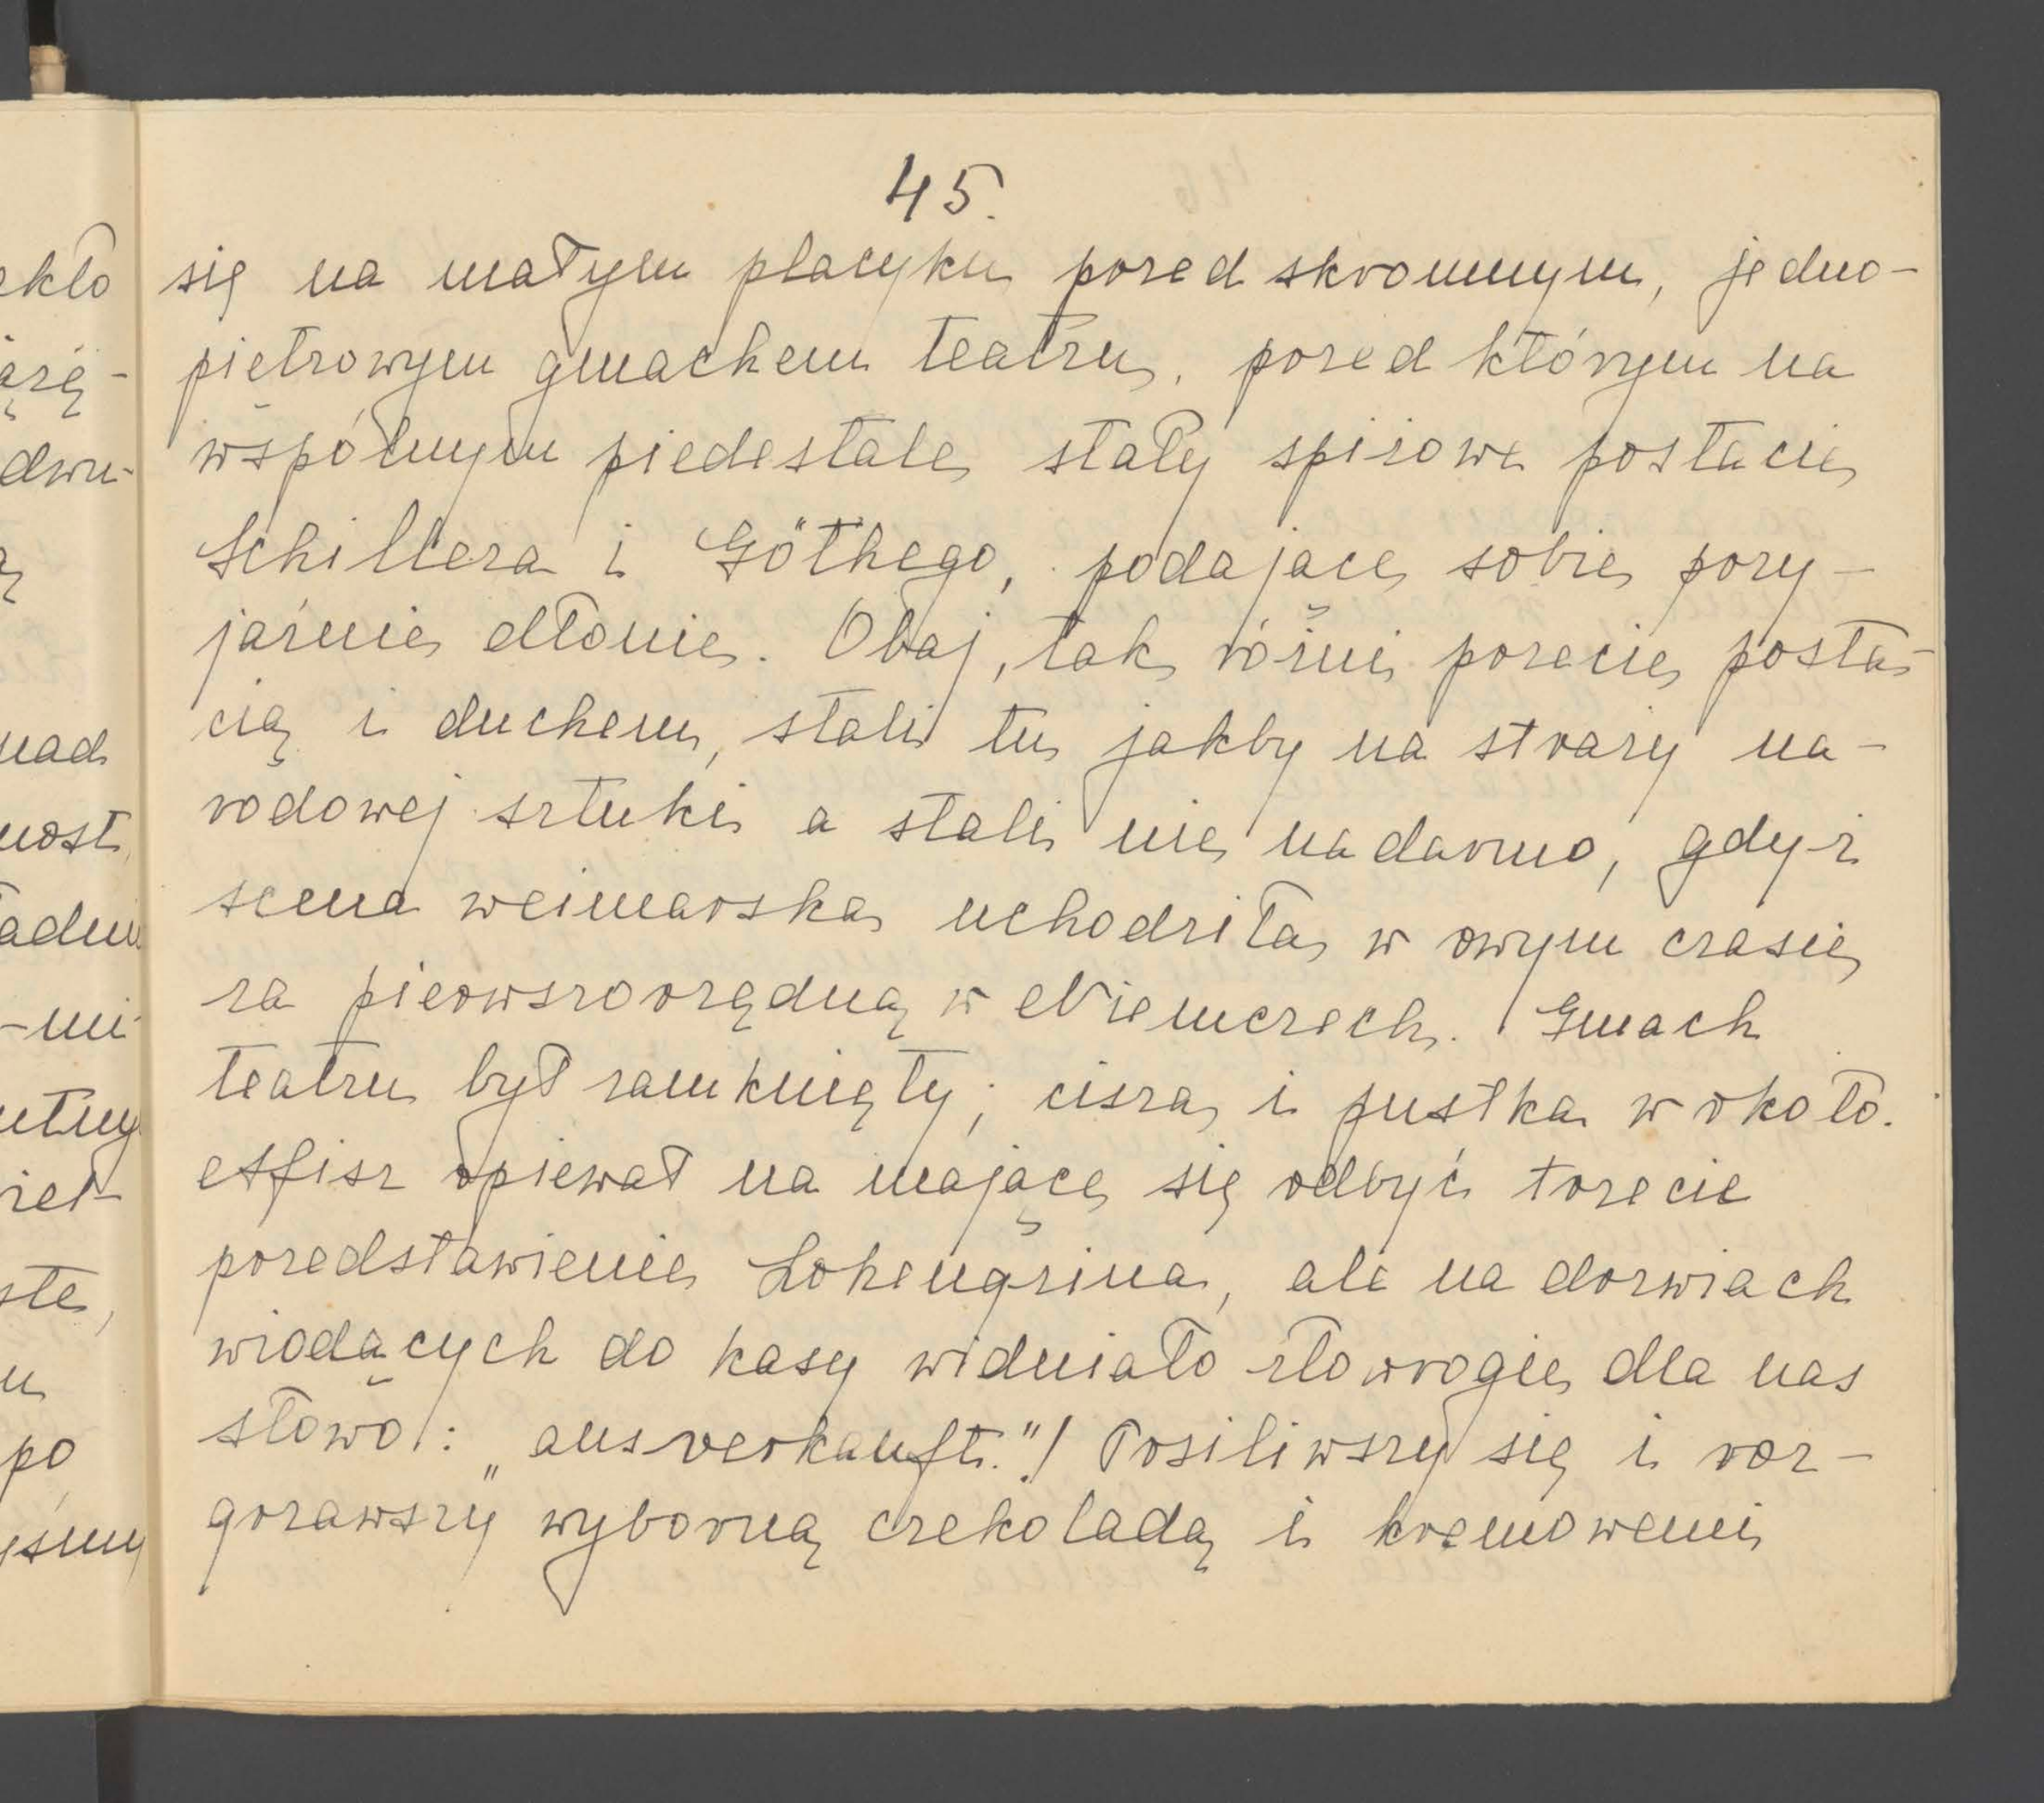 45.
się na małym placyku przed skromnym, jedno-
piętrowym gmachem teatru, przed którym na
wspólnym piedestale stały spiżowe postacie
Schillera i Göthego, podające sobie przy-
jaźnie dłonie. Obaj, tak różni przecie posta-
cią i duchem, stali tu jakby na straży na-
rodowej sztuki a stali nie nadarmo, gdyż
scena weimarska uchodziła w owym czasie
za pierwszorzędną w Niemczech. Gmach
teatru był zamknięty; cisza i pustka wokoło.
Afisz opiewał na mające się odbyć trzecie
przedstawienie Lohengrina, ale na drzwiach
wiodących do kasy widniało złowrogie dla nas
słowo: „ausverkauft."! Posiliwszy się i roz-
grzawszy wyborną czekoladą i kremowemi
ekło
dwu-
nad
most
-mi
ste,
u
po